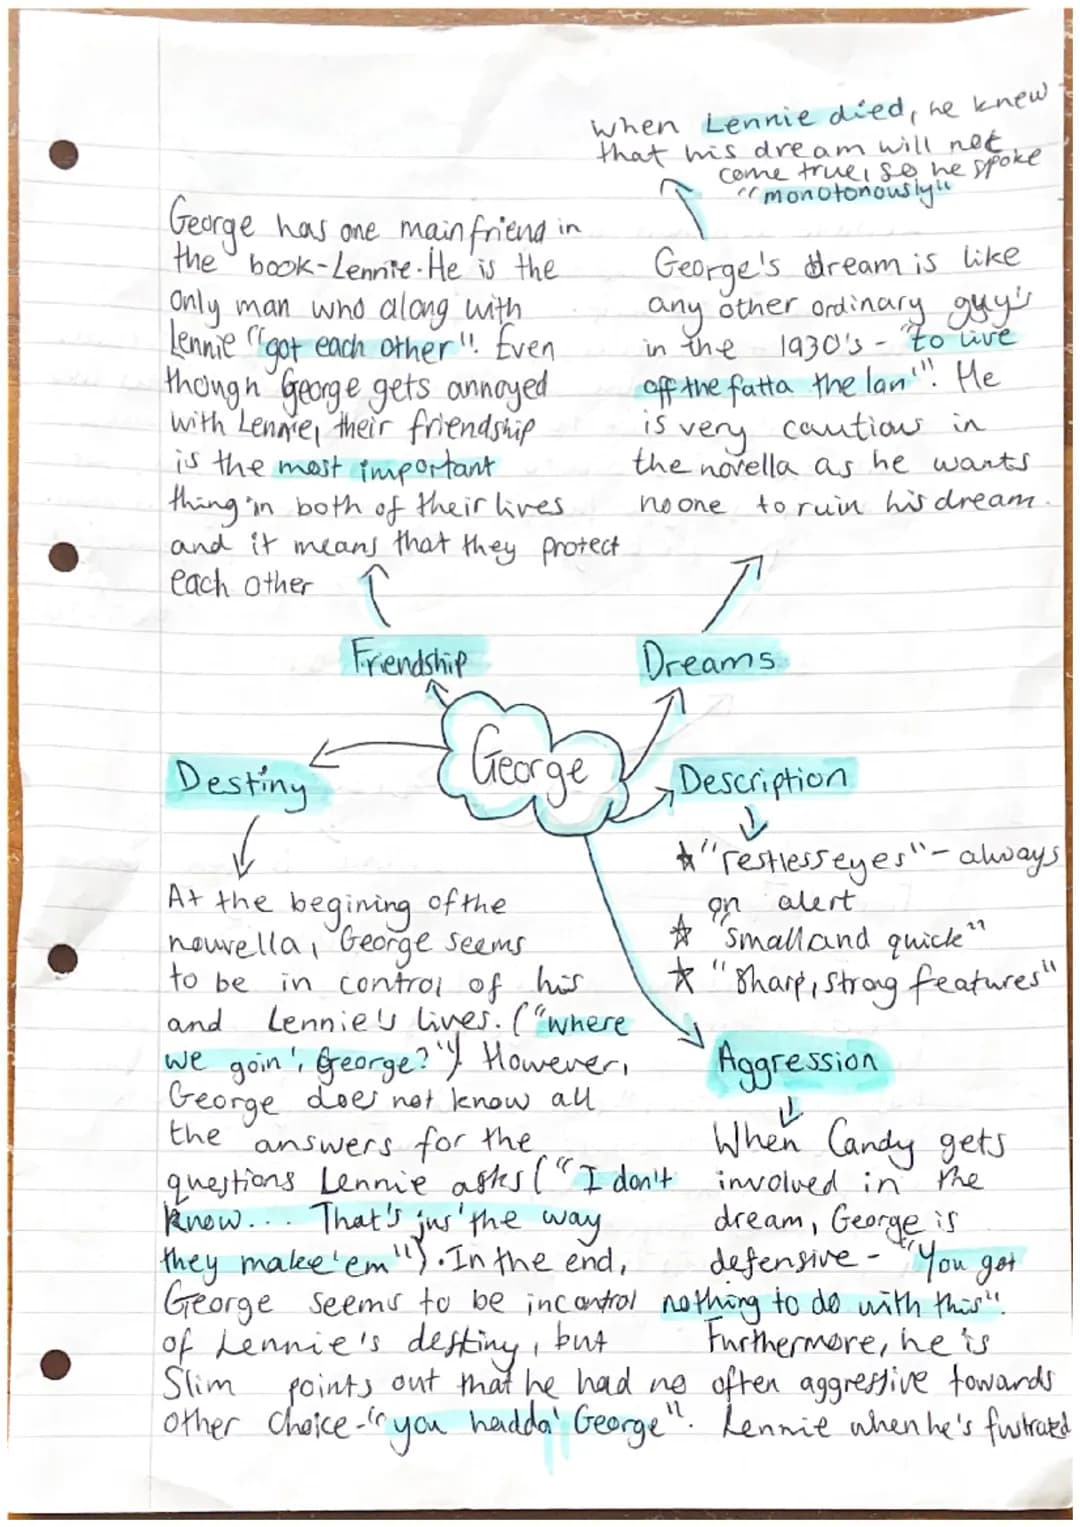 When Lennie died, he knew
that his dream will not
come true, so he spoke
"monotonously"
George has one main friend in
the book-Lennie. He is the
only man who along with
Lennie "got each other". Even
though George gets annoyed
with Lennie, their friendship
is the most important
thing in both of their lives
and it means that they protect
each other
George's dream is like
any other ordinary guy's
in the 1930's - "to live
off the fatta the lan'". He
is very cautious in
the novella as he wants
no one to ruin his dream.
Friendship
Dreams
George
Destiny
Description
"restless eyes" - always
on alert
"small and quick"
"Sharp, strong features"
At the begining of the
nouvella, George seems
to be in control of his
and Lennie's lives. ("where
we goin', George?"). However,
George does not know all
the answers for the
questions Lennie asks ("I don't
know... That's jus' the way
they make 'em"). In the end,
George seems to be incontrol
of Lennie's destiny, but
Slim points out that he had no
other choice - "you hadda' George".
Aggression
When Candy gets
involved in the
dream, George is
defensive - "You got
nothing to do with this".
Furthermore, he is
often aggressive towards
Lennie when he's fustrated